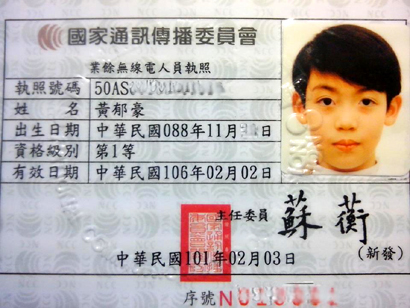 國家通訊傳播委員會
業餘無線電人員執照
執照號碼 50AS
姓名 黃郁豪
出生日期 中華民國088年11月 日
資格級別 第1等
有效日期 中華民國106年02月02日
主任委員 蘇蘅
(新發)
中華民國101年02月03日
序號